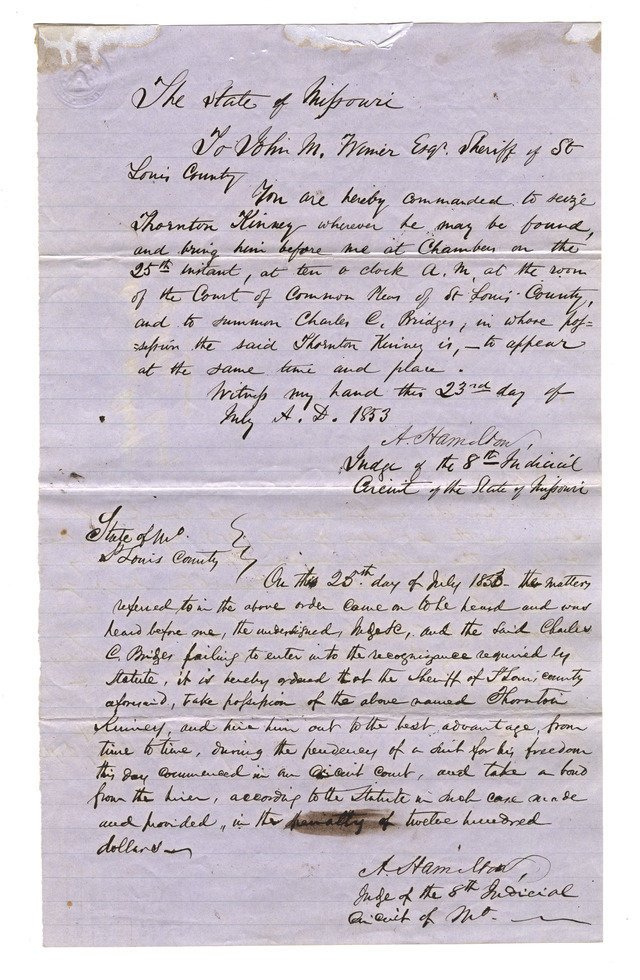 The State of Missouri
To John M. Wimer Esqr. Sheriff of St
Louis County
You are hereby commanded to seize
Thornton Kinney wherever he may be found,
and bring him before me at Chambers on the
25th instant, at ten o clock A. M. at the room
of the Court of Common Pleas of St Louis County,
and to summon Charles C. Bridges, in whose pos=
=session the said Thornton Kinney is, — to appear
at the same time and place.
Witness my hand this 23rd day of
July A. D. 1853
A. Hamilton,
Judge of the 8th Judicial
Circuit of the State of Missouri
State of Mo.
St Louis County
On this 25th. day of July 1853 the matters
referred to in the above order came on to be heard and was
heard before me, the undersigned, Judge &c, and the said Charles
C. Bridges failing to enter into the recognizance required by
Statute, it is hereby ordered that the Sheriff of St Louis county
aforesaid, take possession of the above named Thornton
Kinney, and hire him out to the best advantage, from
time to time, during the pendency of a suit for his freedom
this day commenced in our Circuit court, and take a bond
from the hirer, according to the Statute in such case made
and provided, in the penalty of twelve hundred
dollars —
A. Hamilton,
Judge of the 8th Judicial
Circuit of Mo. —